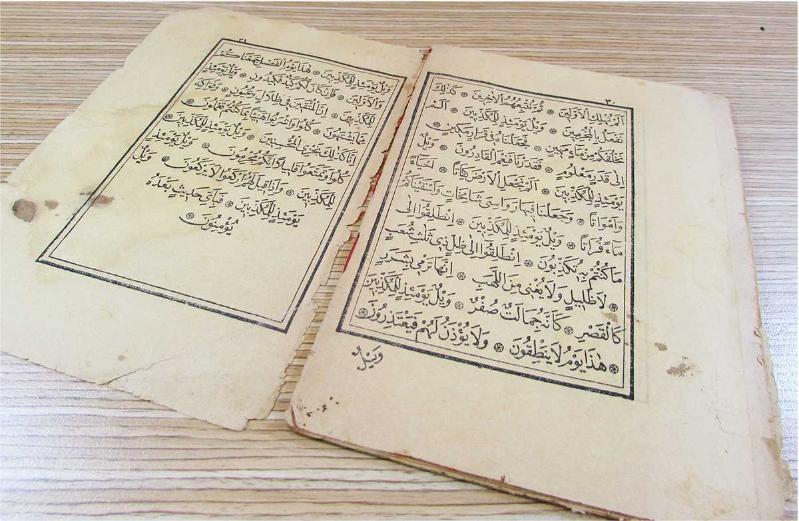 ٣٠
اَلَمْ نُهْلِكِ الْاَوَّلِينَ ۞ ثُمَّ نُتْبِعُهُمُ الْاٰخِرِينَ ۞ كَذٰلِكَ
نَفْعَلُ بِالْمُجْرِمِينَ ۞ وَيْلٌ يَوْمَئِذٍ لِلْمُكَذِّبِينَ ۞ اَلَمْ
نَخْلُقْكُمْ مِنْ مَاءٍ مَهِينٍ ۞ فَجَعَلْنَاهُ فِي قَرَارٍ مَكِينٍ ۞
اِلٰى قَدَرٍ مَعْلُومٍ ۞ فَقَدَرْنَا فَنِعْمَ الْقَادِرُونَ ۞ وَيْلٌ
يَوْمَئِذٍ لِلْمُكَذِّبِينَ ۞ اَلَمْ نَجْعَلِ الْاَرْضَ كِفَاتًا ۞ اَحْيَاءً
وَاَمْوَاتًا ۞ وَجَعَلْنَا فِيهَا رَوَاسِيَ شَامِخَاتٍ وَاَسْقَيْنَاكُمْ
مَاءً فُرَاتًا ۞ وَيْلٌ يَوْمَئِذٍ لِلْمُكَذِّبِينَ ۞ اِنْطَلِقُوا اِلٰى
مَا كُنْتُمْ بِهِ تُكَذِّبُونَ ۞ اِنْطَلِقُوا اِلٰى ظِلٍّ ذِي ثَلٰثِ شُعَبٍ
۞ لَا ظَلِيلٍ وَلَا يُغْنِي مِنَ اللَّهَبِ ۞ اِنَّهَا تَرْمِي بِشَرَرٍ
كَالْقَصْرِ ۞ كَاَنَّهُ جِمَالَتٌ صُفْرٌ ۞ وَيْلٌ يَوْمَئِذٍ لِلْمُكَذِّبِينَ
۞ هٰذَا يَوْمُ لَا يَنْطِقُونَ ۞ وَلَا يُؤْذَنُ لَهُمْ فَيَعْتَذِرُونَ ۞
وَيْلٌ
وَيْلٌ يَوْمَئِذٍ لِلْمُكَذِّبِينَ ۞ هٰذَا يَوْمُ الْفَصْلِ جَمَعْنَاكُمْ
وَالْاَوَّلِينَ ۞ فَاِنْ كَانَ لَكُمْ كَيْدٌ فَكِيدُونِ ۞ وَيْلٌ يَوْمَئِذٍ
لِلْمُكَذِّبِينَ ۞ اِنَّ الْمُتَّقِينَ فِي ظِلَالٍ وَعُيُونٍ ۞ وَفَوَاكِهَ
مِمَّا يَشْتَهُونَ ۞ كُلُوا وَاشْرَبُوا هَنِيئًا بِمَا كُنْتُمْ تَعْمَلُونَ ۞
اِنَّا كَذٰلِكَ نَجْزِي الْمُحْسِنِينَ ۞ وَيْلٌ يَوْمَئِذٍ لِلْمُكَذِّبِينَ ۞
كُلُوا وَتَمَتَّعُوا قَلِيلًا اِنَّكُمْ مُجْرِمُونَ ۞ وَيْلٌ يَوْمَئِذٍ
لِلْمُكَذِّبِينَ ۞ وَاِذَا قِيلَ لَهُمُ ارْكَعُوا لَا يَرْكَعُونَ ۞ وَيْلٌ
يَوْمَئِذٍ لِلْمُكَذِّبِينَ ۞ فَبِاَيِّ حَدِيثٍ بَعْدَهُ
يُؤْمِنُونَ ۞